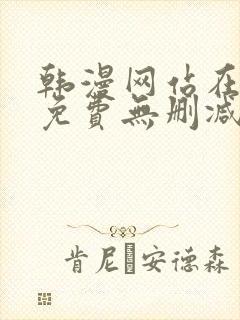 韩漫网站在
免費無刪减
肯尼 安德森